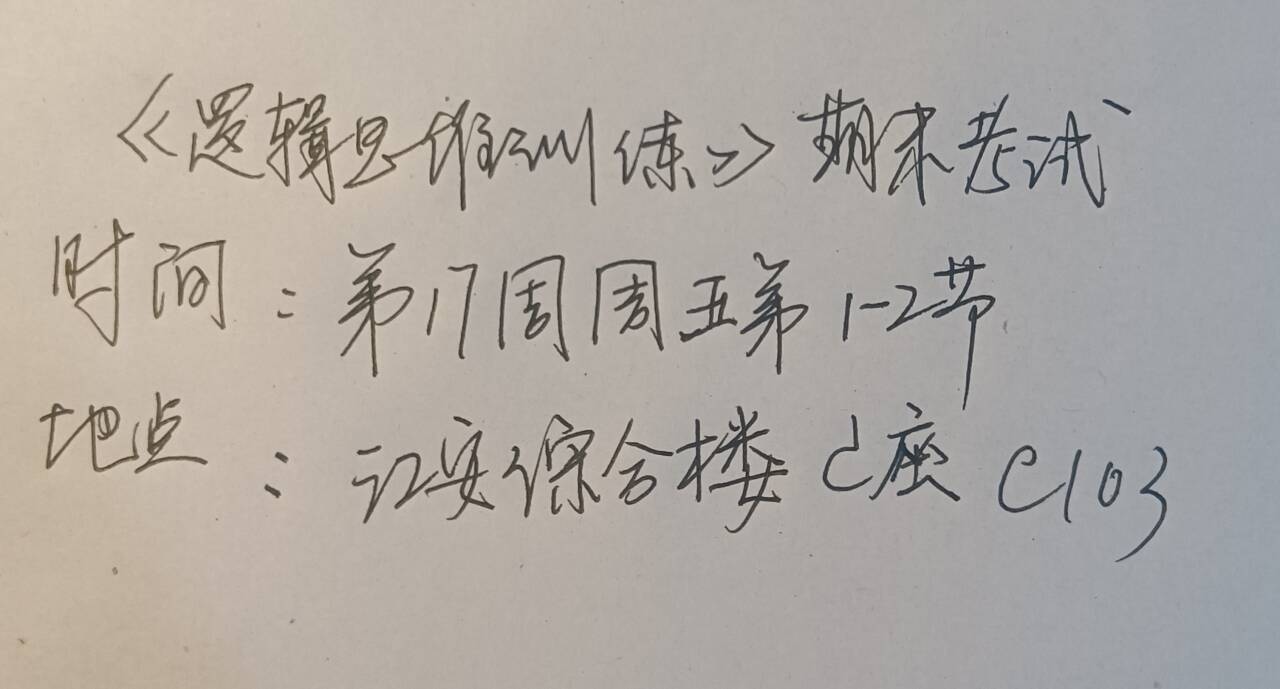 《逻辑思维训练》期末考试
时间：第17周周五第1-2节
地点：江安综合楼C座C103